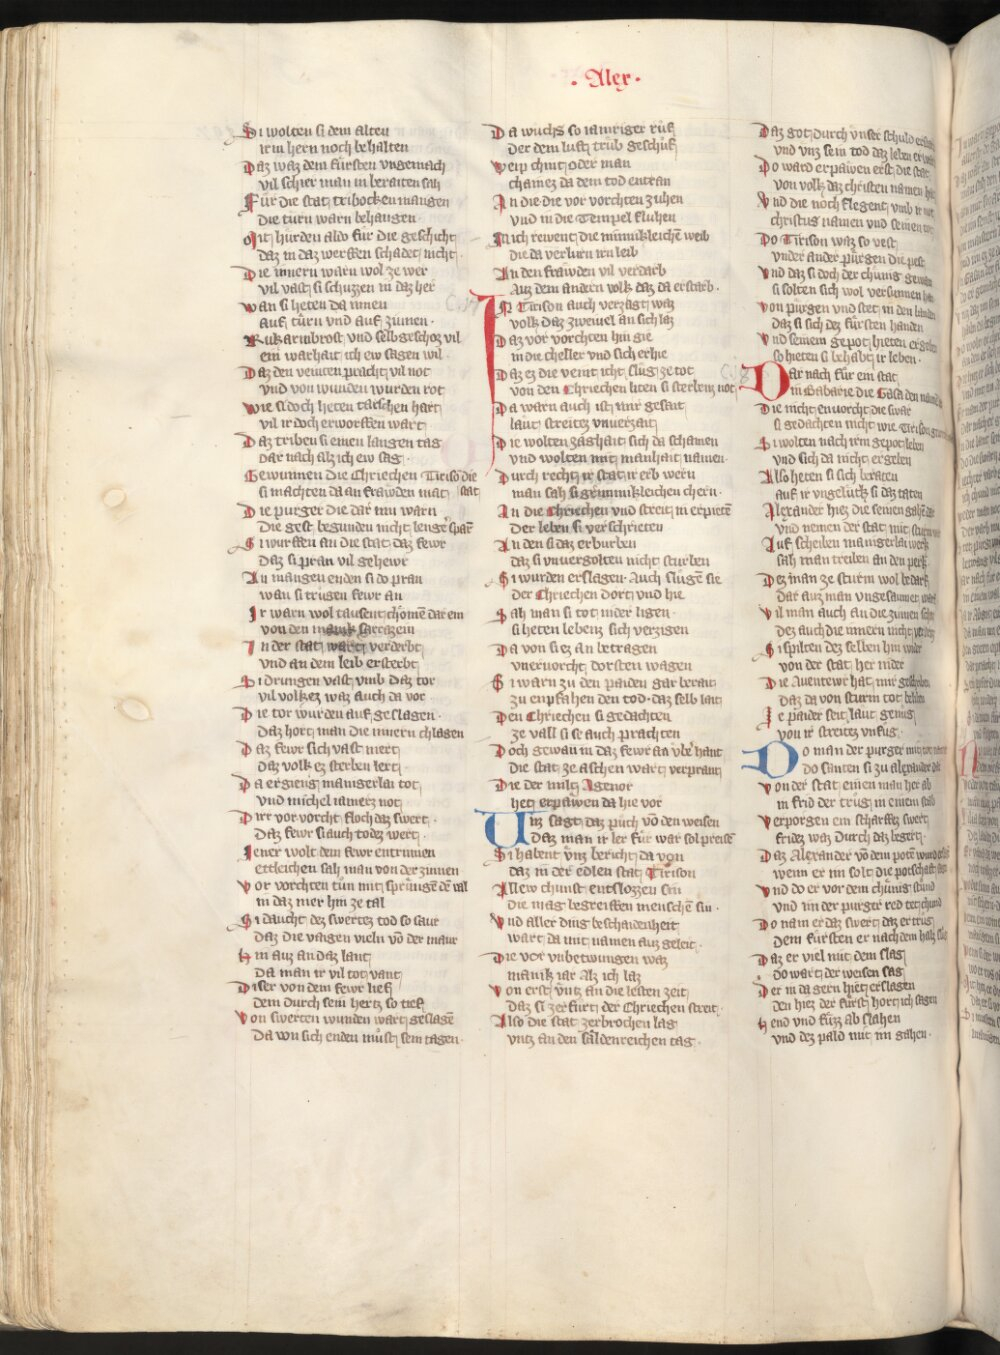 · Alex ·
Si wolten si dem alten
irm hern noch behalten
Daz waz dem fürsten vngemach
vil schier man in beraiten sah
Für die stat tribocken mangen
die türn warn behangen
Mit hürden also für die geschicht
daz in daz werffen schadet nicht
Die innern warn wol ze wer
vil vast si schuzzen in daz her
wan si heten da innen
auf türn vnd auf zinnen
Rukarmbrost vnd selbgeschoz vil
ein warhait ich ew sagen wil
Daz den veinten pracht vil not
vnd von wunden wurden rot
wie si doch heten tarschen hart
vil ir doch erworffen wart
Daz triben si einen langen tag
dar nach alz ich ew sag
Gewunnen die Chriechen Tirison die stat
si machten da an frawden mat
Die purger die dar inn warn
Die gest begunden nicht lenger sparn
Si wurffen an die stat daz fewr
daz si pran vil gehewr
An mangen enden si do pran
wan si trugen fewr an
Ir warn wol tausent chomen dar ein
von den sarrazein
In der stat wart verderbt
vnd an dem leib ersterbt
Si drungen vast vmb daz tor
vil volkez waz auch da vor
Die tor wurden auf geslagen
daz hort man die innern chlagen
Daz fewr sich vast mert
daz volk ez sterben lert
Da ergieng maingerlai tot
vnd michel iamerz not
Dirr vor vorcht floch daz swert
Daz fewr si auch todez wert
Jener wolt dem fewr entrinnen
ettleichen sah man von der zinnen
Vor vorchten tün mit sprüngen den val
in daz mer hin ze tal
Si daucht dez swertez tod so saur
daz die vaigen vieln von der maur
Hin auz an daz lant
Da man ir vil tot vant
Diser von dem fewr lief
dem durch sein hertz so tief
Von swerten wunden wart geslagen
Da von sich enden müst sein tagen
Da wuchs so iamriger ruf
Der dem luft trüb geschuf
Weip chint oder man
chainez da dem tod entran
An die die vor vorchten zuhen
vnd in die Tempel fluhen
Mich rewent die minnikleichen weib
die da verlurn irn leib
An den frawden vil verdarb
Auz dem andern volk daz da erstarb
In Tirison auch verzagt waz
volk daz zweiuel an sich laz
Daz vor vorchten hin gie
in die cheller vnd sich erhie
Daz ez die veint icht slüg ze tot
von den Chriechen liten si sterbenz not
Da warn auch ist mir gesait
laut streitez vnuerzait
Die wolten zaghait sich da schamen
vnd wolten mit manhait namen
Durch recht ir stat ir erb wern
man sah si grimmikleichen chern
An die Chriechen vnd streit in erpieten
Der leben si verschrieten
An den si daz erburben
daz si vnuergolten nicht sturben
Si wurden erslagen. Auch slügen sie
der Chriechen dort vnd hie
Sah man si tot nider ligen
si heten lebenz sich verzigen
Da von si ez an betragen
vneruorcht dorsten wagen
Si warn zu den paiden gar berait
zu enpfahen den tod. daz selb lait
Den Chriechen si gedachten
ze vall si se auch prachten
Doch gewan in daz fewr an vber hant
die stat ze aschen wart verprant
Die der milt Agenor
het erpawen da hie vor
Unz sagt daz puch von den weisen
Daz man ir ler für war sol preisen
Si habent vnz bericht da von
daz in der edlen stat Tirison
Allew chunst entslozzen sin
die mag begreiffen menschen sin
Vnd aller ding beschaidenheit
wart da mit namen auz geleit
Die vor vnbetwungen waz
manik iar alz ich laz
Von erst vntz an die lesten zeit
daz si zerfürt der Chriechen streit
Also die stat zerbrochen lag
vntz an den säldenreichen tag
Daz got durch vnser schuld
vnd vnz sein tod daz leben
Do ward erpawen erst die stat
von volk daz christen namen
Vnd die noch flegent vmb ir
christus namen vnd seinen
Do Tirison waz so vest
vnder ander pürgen die pest
Vnd daz si doch der chünig gewan
si solten sich wol versunnen han
Von pürgen vnd stet in den landen
daz si sich dez fürsten handen
Vnd seinem gepot hieten ergeben
so hieten si behabt ir leben
Dar nach für ein stat
in Sabarie die Gasa den namen
Die nicht envorcht die swar
si gedachten nicht wie Tirison
Si wolten nach irm gepot leben
vnd sich da nicht ergeben
Also heten si sich beraten
auf ir vngelück si daz taten
Alexander hiez die seinen gahen
vnd nemen der stat mit sturm
Auf scheiben maingerlai werk
sah man treiben an den perk
Dez man ze sturm wol bedarf
Dar auz man vngesaumet warf
Vil man auch an die zinnen
dez auch die innern nicht
Si spilten dez selben hin wider
von der stat her nider
Die Auentewr hat mir geschriben
daz da von sturm tot beliben
Je paider seit laut genug
von ir streitez vnfug
Do man der purger
do santen si zu alexander
Von der stat einen man her ab
in frid der trüg in einem stab
Verporgen ein scharffez swert
fridez waz durch daz begert
Daz Alexander von dem poten
wenn er im solt die potschaft
Vnd do er vor dem chünig stund
vnd im der purger red tet chund
Do nam er daz swert daz er trug
Dem fürsten er nach dem halz slug
Daz er viel mit dem slag
do wart der weisen sag
Der in da gern hiet erslagen
den hiez der fürst hort ich sagen
Hend vnd füzz ab slahen
vnd dez pald mit im gahen